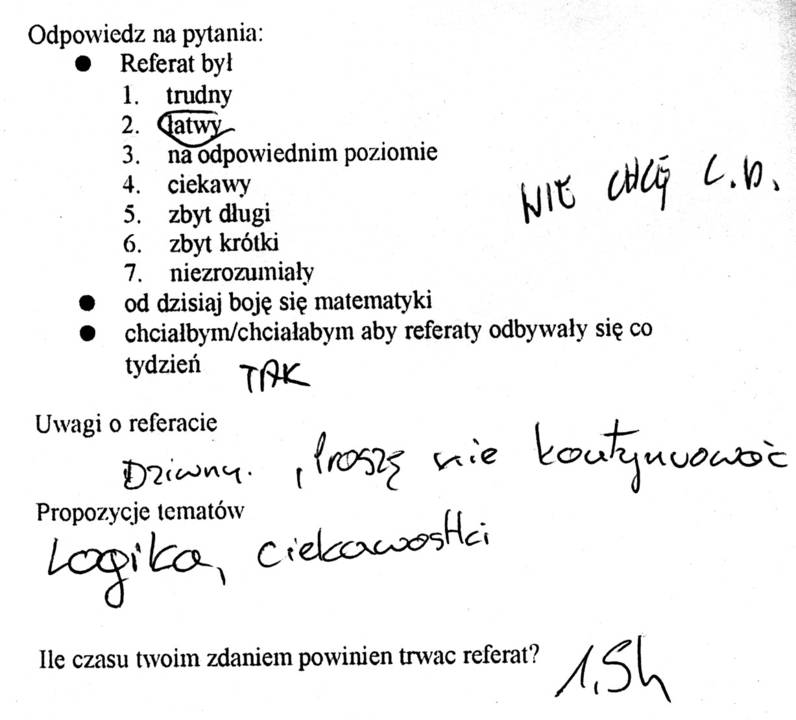 Odpowiedz na pytania:
● Referat był
1. trudny
2. łatwy
3. na odpowiednim poziomie
4. ciekawy
NIE CHCĘ C.D.
5. zbyt długi
6. zbyt krótki
7. niezrozumiały
● od dzisiaj boję się matematyki
● chciałbym/chciałabym aby referaty odbywały się co
tydzień TAK
Uwagi o referacie
Dziwny. Proszę nie kontynuować
Propozycje tematów
Logika, ciekawostki
Ile czasu twoim zdaniem powinien trwac referat? 1,5h